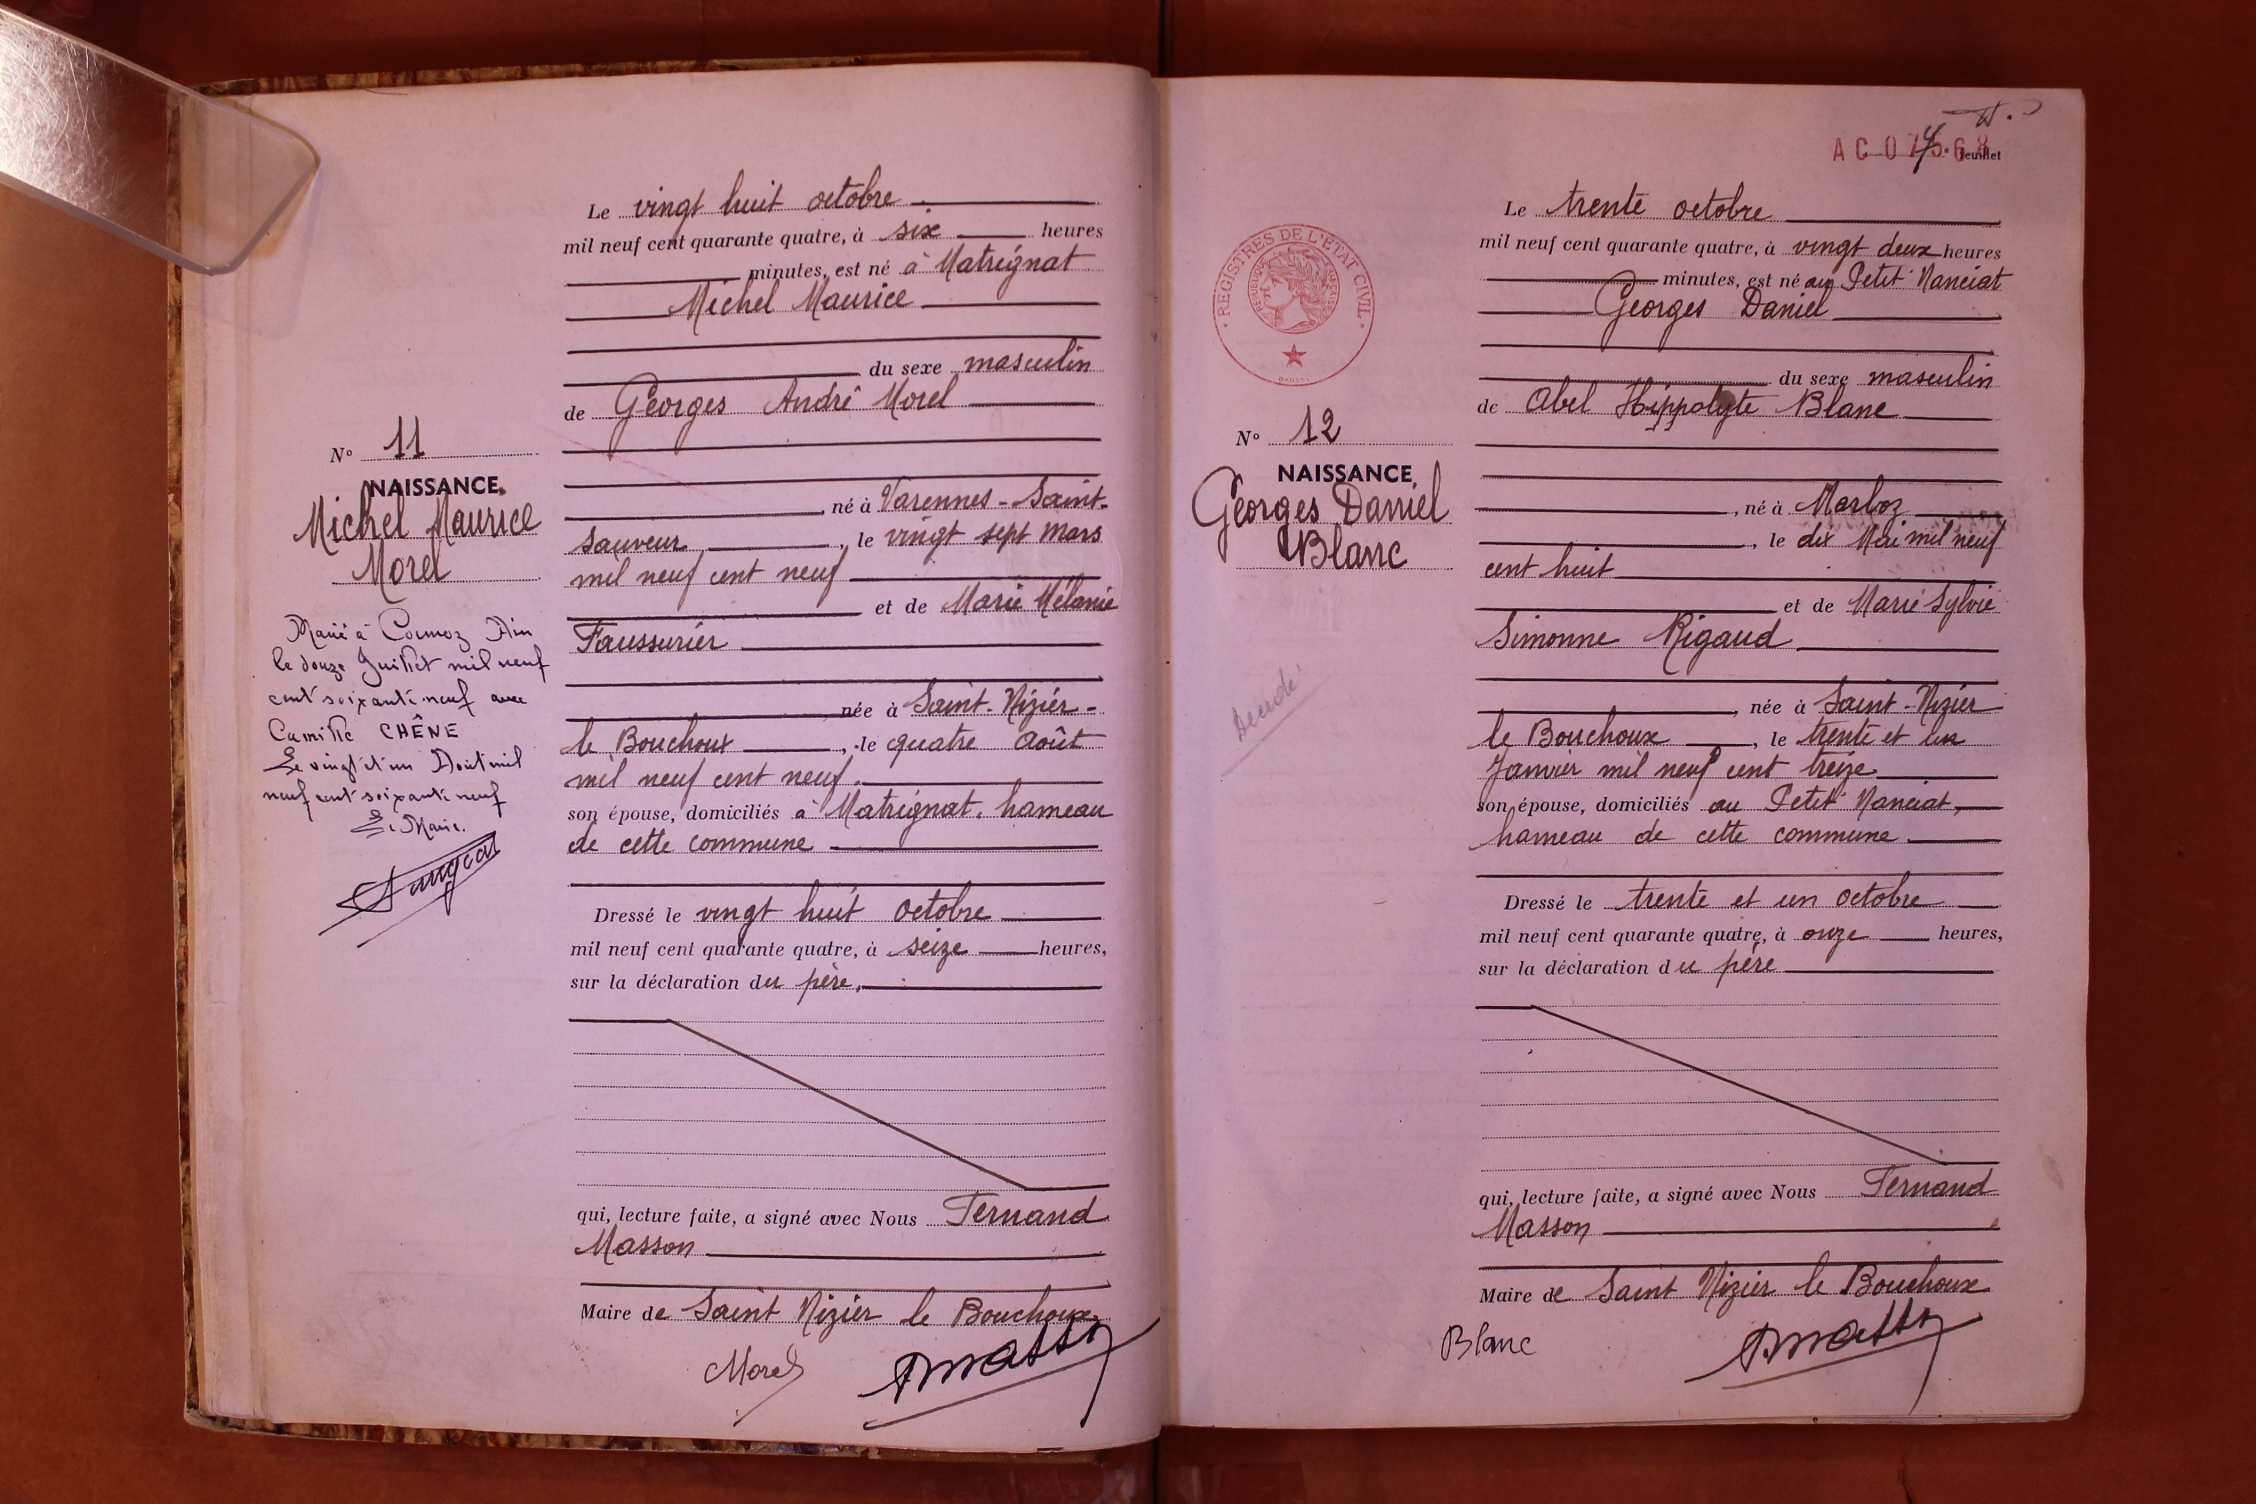 Le vingt huit octobre
mil neuf cent quarante quatre, à six heures
minutes, est né à Matrignat
Michel Maurice
du sexe masculin
de Georges André Morel
né à Varennes-Saint-
Sauveur, le vingt sept mars
mil neuf cent neuf
et de Marie Mélanie
Faussurier
née à Saint-Nizier-
le Bouchoux, le quatre août
mil neuf cent neuf.
son épouse, domiciliés à Matrignat, hameau
de cette commune
Dressé le vingt huit octobre
mil neuf cent quarante quatre, à seize heures,
sur la déclaration du père.
qui, lecture faite, a signé avec Nous Fernand
Masson
Maire de Saint Nizier le Bouchoux
Morel
Nº 11
NAISSANCE
Michel Maurice
Morel
Marié à Cormoz Ain
le douze Juillet mil neuf
cent soixante neuf avec
Camille CHÊNE
Le vingt et un Août mil
neuf cent soixante neuf
Le Maire.
feuillet
REGISTRES DE L'ÉTAT CIVIL
Le trente octobre
mil neuf cent quarante quatre, à vingt deux heures
minutes, est né au Petit Nanciat
Georges Daniel
du sexe masculin
de Abel Hippolyte Blanc
né à Marboz
, le dix Mai mil neuf
cent huit
et de Marie Sylvie
Simonne Rigaud
née à Saint-Nizier
le Bouchoux, le trente et un
Janvier mil neuf cent treize
son épouse, domiciliés au Petit Nanciat,
hameau de cette commune
Dressé le trente et un octobre
mil neuf cent quarante quatre, à onze heures,
sur la déclaration du père
qui, lecture faite, a signé avec Nous Fernand
Masson
Maire de Saint Nizier le Bouchoux
Blanc
Nº 12
NAISSANCE
Georges Daniel
Blanc